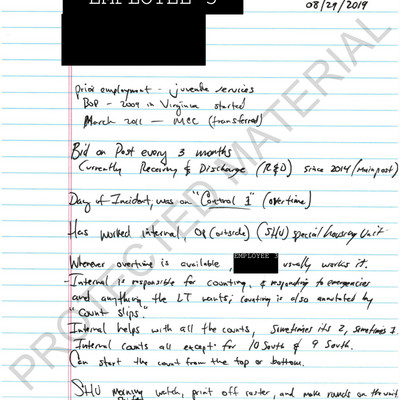 EMPLOYEE 3
08/29/2019
prior employment - juvenile services
BOP - 2009 in Virginia started
March 2011 - MCC (transferred)
Bid on Post every 3 months
Currently Receiving & Discharge (R&D) since 2014 (Main post)
Day of Incident, was on "Control 1" (overtime)
Has worked internal, OP (outside) (SHU) special housing Unit
Wherever overtime is available, EMPLOYEE 3 usually works it.
- Internal is responsible for counting, & responding to emergencies
and anything the LT wants; counting is also annotated by
"count slips."
Internal helps with all the counts, sometimes its 2, sometimes 3.
Internal counts all except for 10 South & 9 South.
Can start the count from the top or bottom.
SHU morning watch, print off roster, and make rounds on the unit
PROTECTED MATERIAL